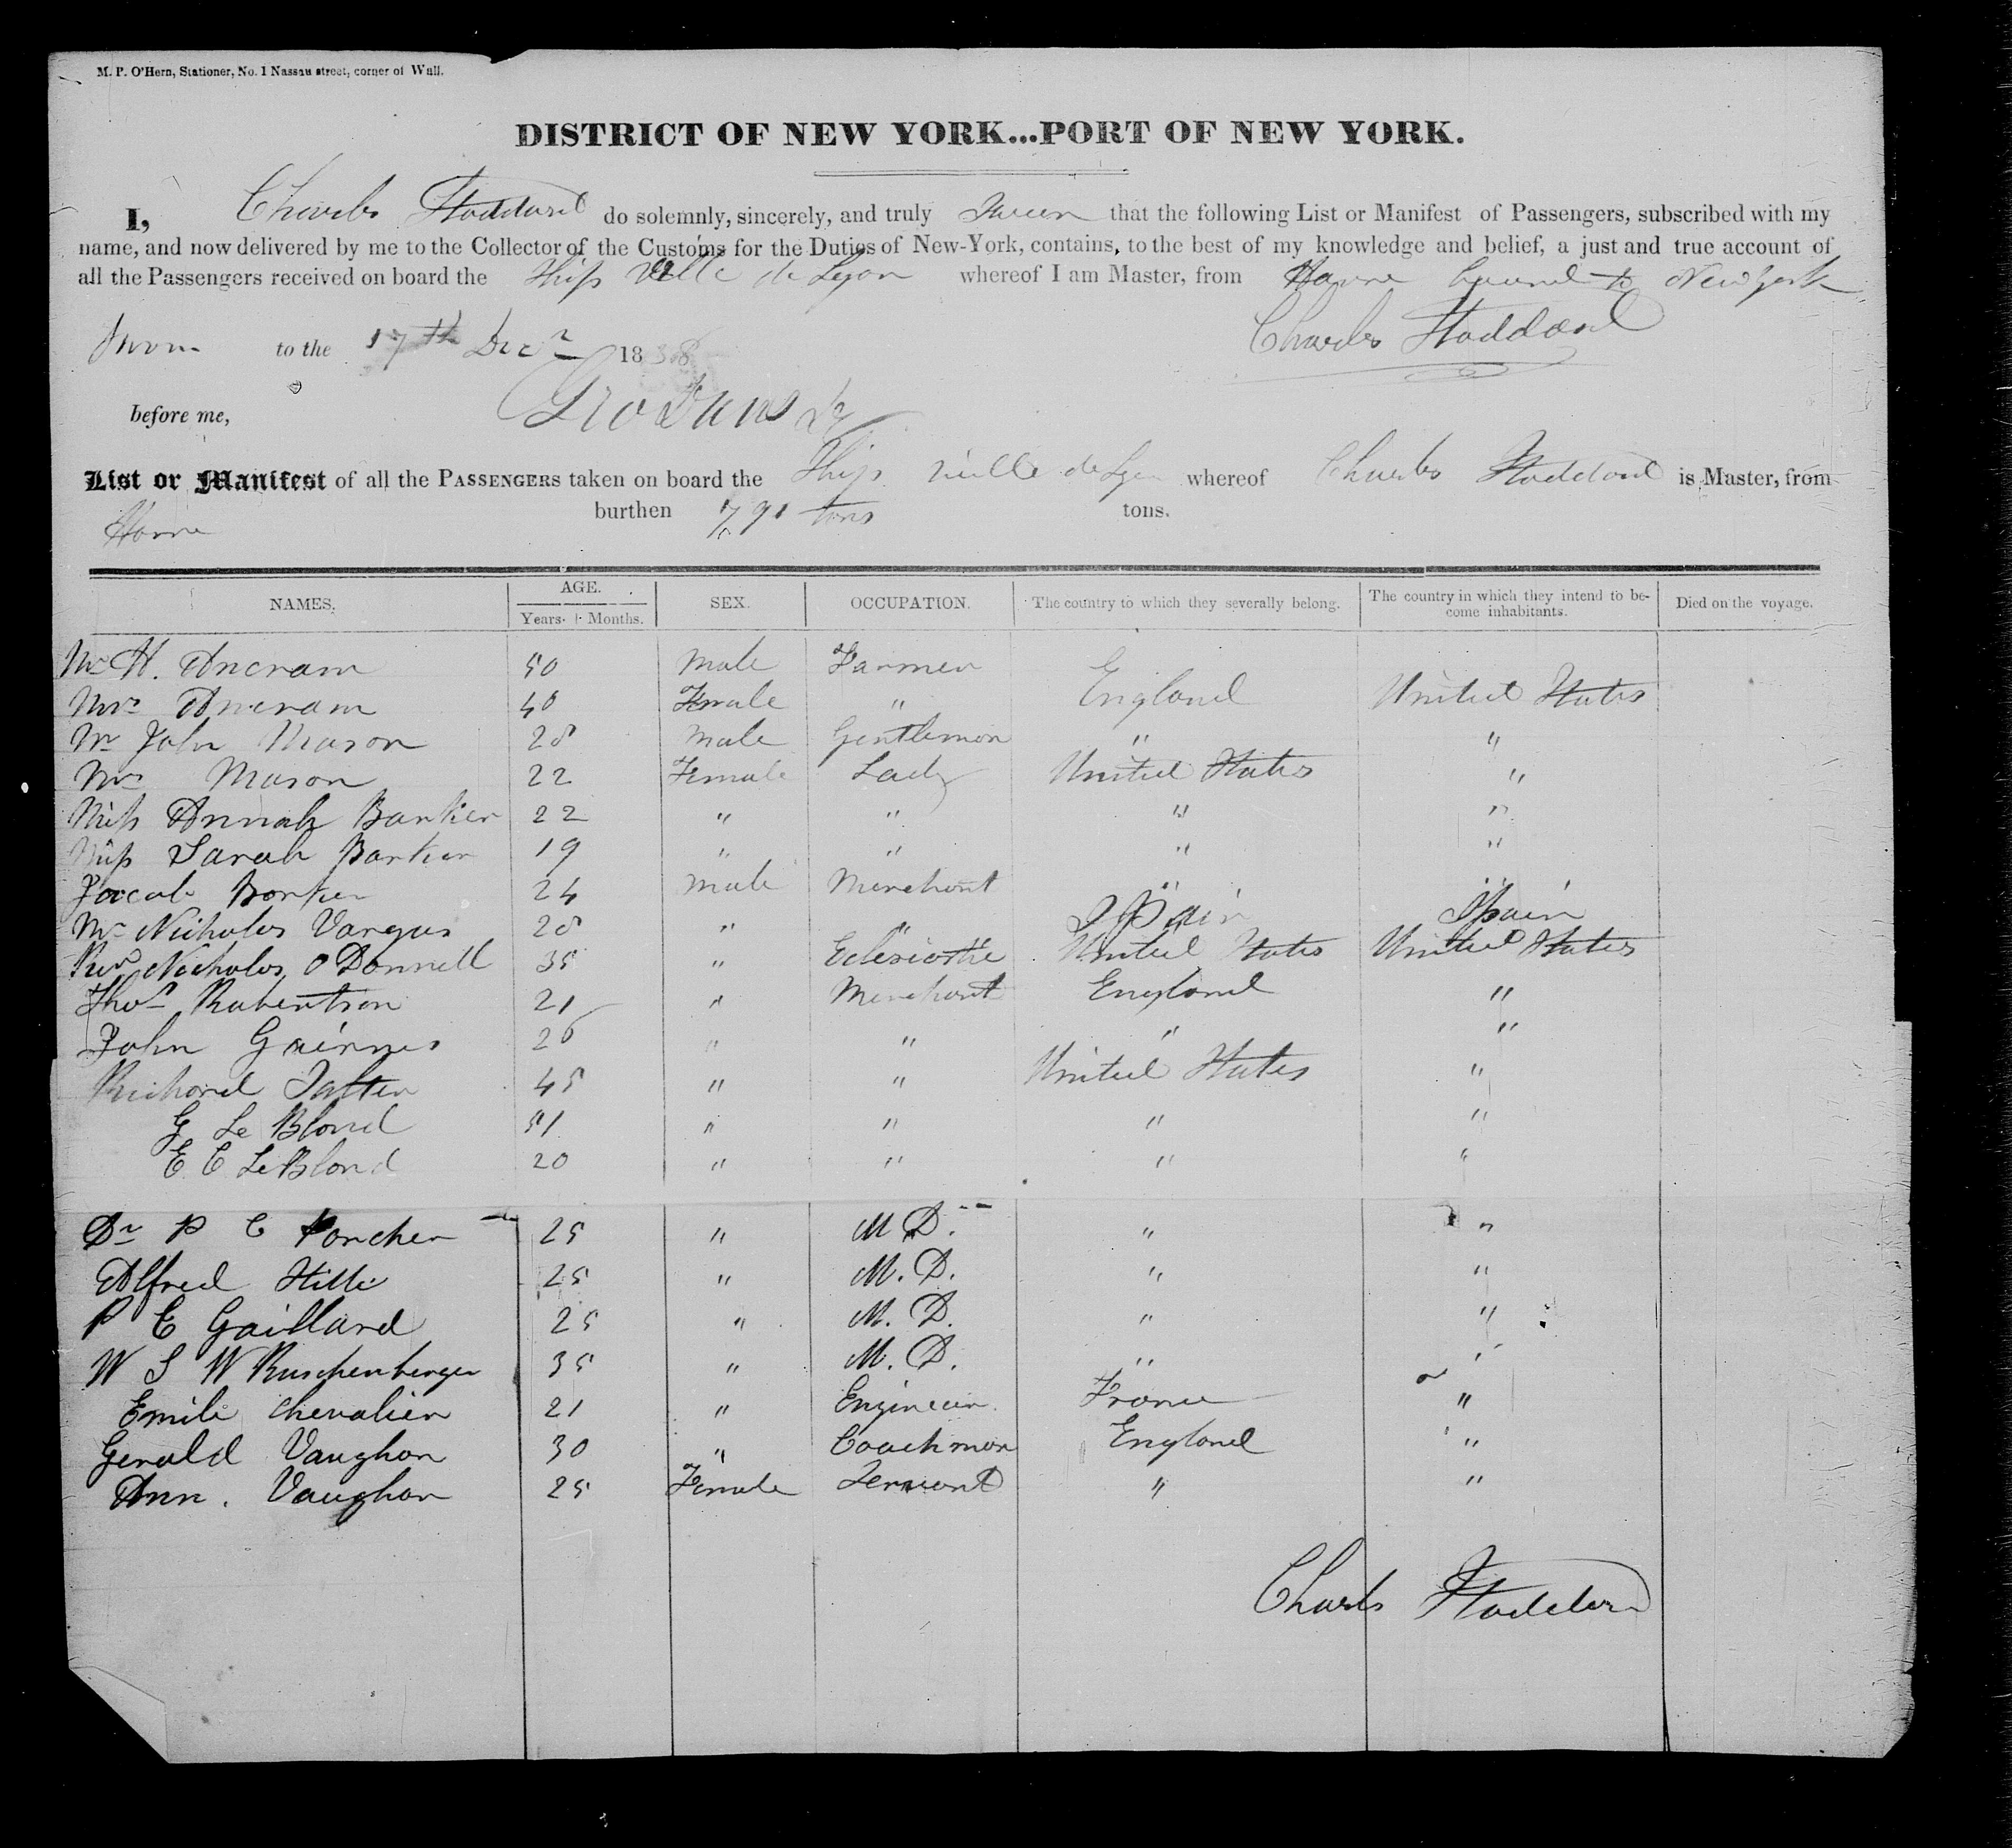 M. P. O'Hern, Stationer, No. 1 Nassau street, corner of Wall.
DISTRICT OF NEW YORK...PORT OF NEW YORK.
I, Charles Stoddard do solemnly, sincerely, and truly Swear that the following List or Manifest of Passengers, subscribed with my
name, and now delivered by me to the Collector of the Customs for the Duties of New-York, contains, to the best of my knowledge and belief, a just and true account of
all the Passengers received on board the Ship Ville de Lyon whereof I am Master, from Havre bound to New York
Sworn to the 17th Decr 1838 Charles Stoddard
before me,
List or Manifest of all the PASSENGERS taken on board the Ship Ville de Lyon whereof Charles Stoddard is Master, from
Havre burthen 791 tons tons.
NAMES. AGE. Years. Months. SEX. OCCUPATION. The country to which they severally belong. The country in which they intend to become inhabitants. Died on the voyage.
Mr H. Ancram 50 Male Farmer
Mrs Ancram 40 Female " England United States
Mr John Mason 28 Male Gentleman " "
Mrs Mason 22 Female Lady United States "
Miss Annah Barker 22 " " " "
Miss Sarah Barker 19 " " " "
Jacob Barker 24 Male Merchant " "
Mr Nicholas Vargus 28 " " Spain Spain
Revd Nicholas O Donnell 35 " Eclesiastic United States United States
Thos Robertson 21 " Merchant England "
John Guirnes 26 " " " "
Richard Salter 45 " " United States "
G Le Blond 51 " " " "
E C Le Blond 20 " " " "
Dr P C Porcher 25 " M D. " "
Alfred Hille 25 " M. D. " "
P C Gaillard 25 " M. D. " "
W S W Ruschenberger 35 " M. D. " "
Emile Chevalier 21 " Engineer France "
Gerald Vaughan 30 " Coachman England "
Ann. Vaughan 25 Female Servant " "
Charles Stoddard